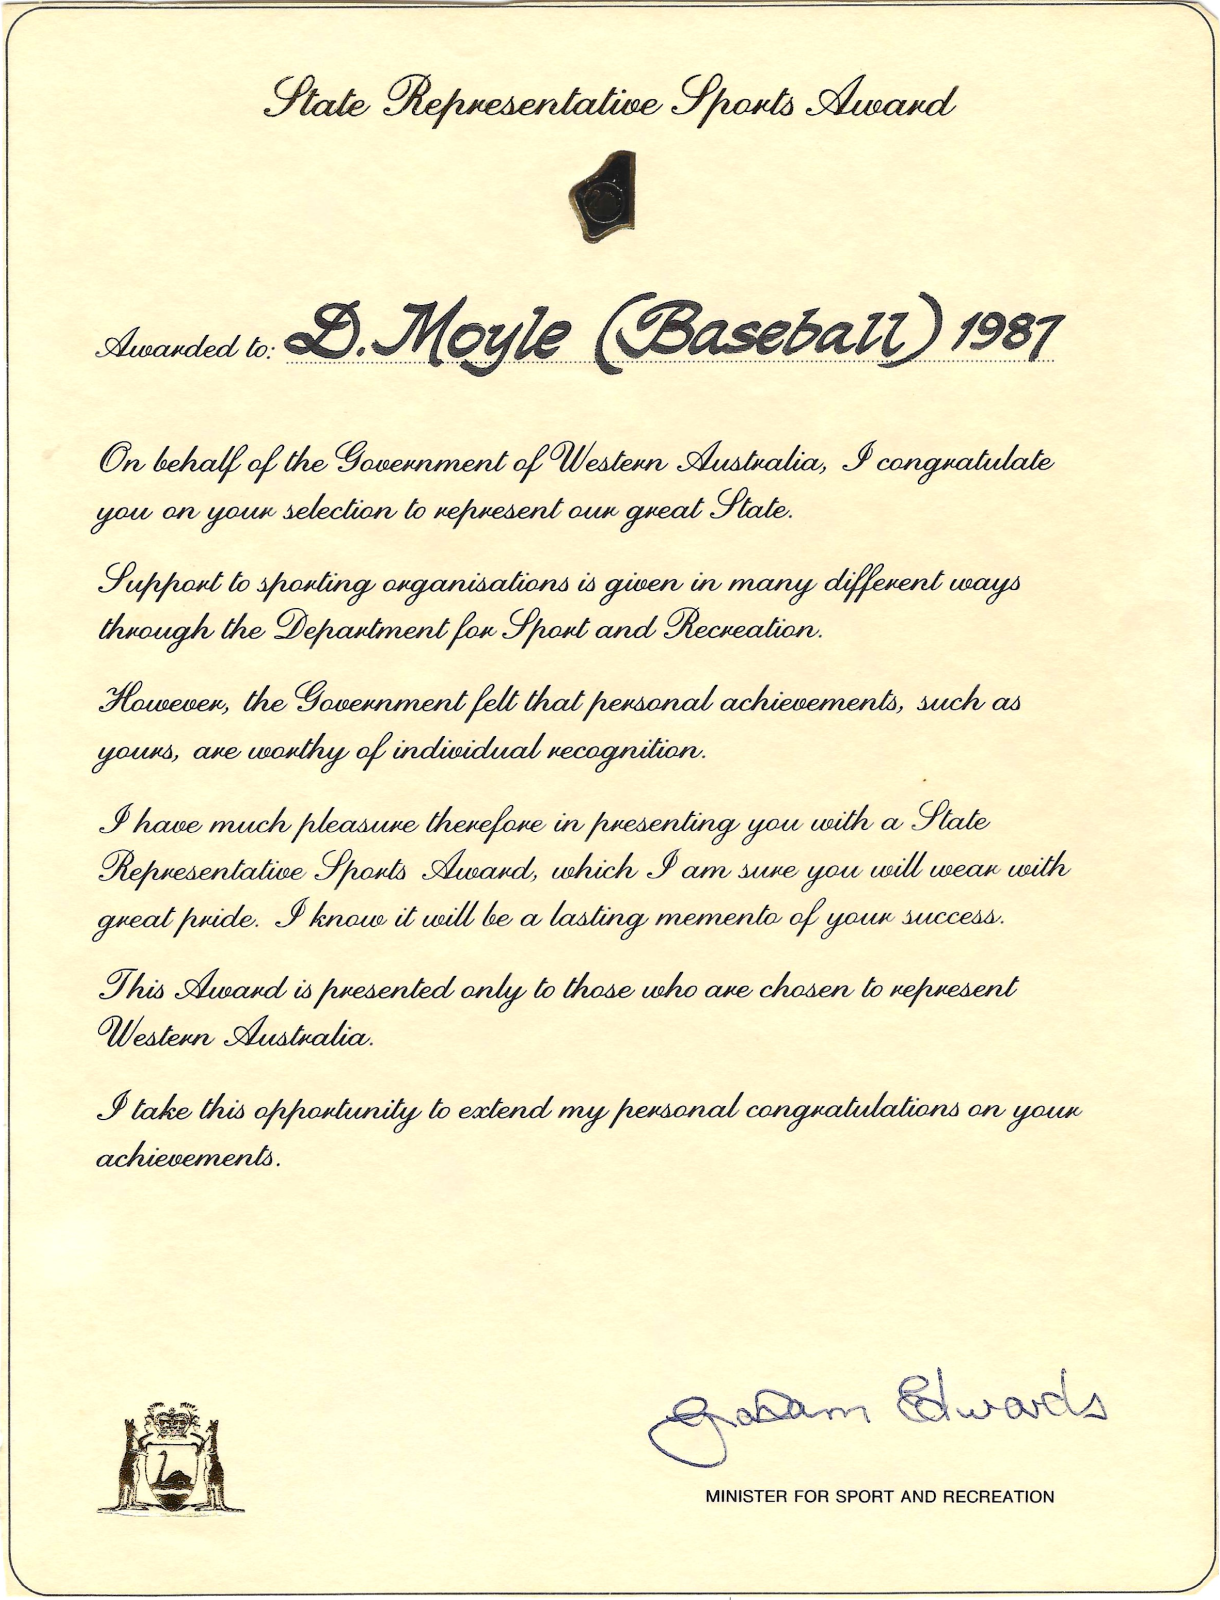 State Representative Sports Award
Awarded to: D. Moyle (Baseball) 1987
On behalf of the Government of Western Australia, I congratulate
you on your selection to represent our great State.
Support to sporting organisations is given in many different ways
through the Department for Sport and Recreation.
However, the Government felt that personal achievements, such as
yours, are worthy of individual recognition.
I have much pleasure therefore in presenting you with a State
Representative Sports Award, which I am sure you will wear with
great pride. I know it will be a lasting memento of your success.
This Award is presented only to those who are chosen to represent
Western Australia.
I take this opportunity to extend my personal congratulations on your
achievements.
Graham Edwards
MINISTER FOR SPORT AND RECREATION